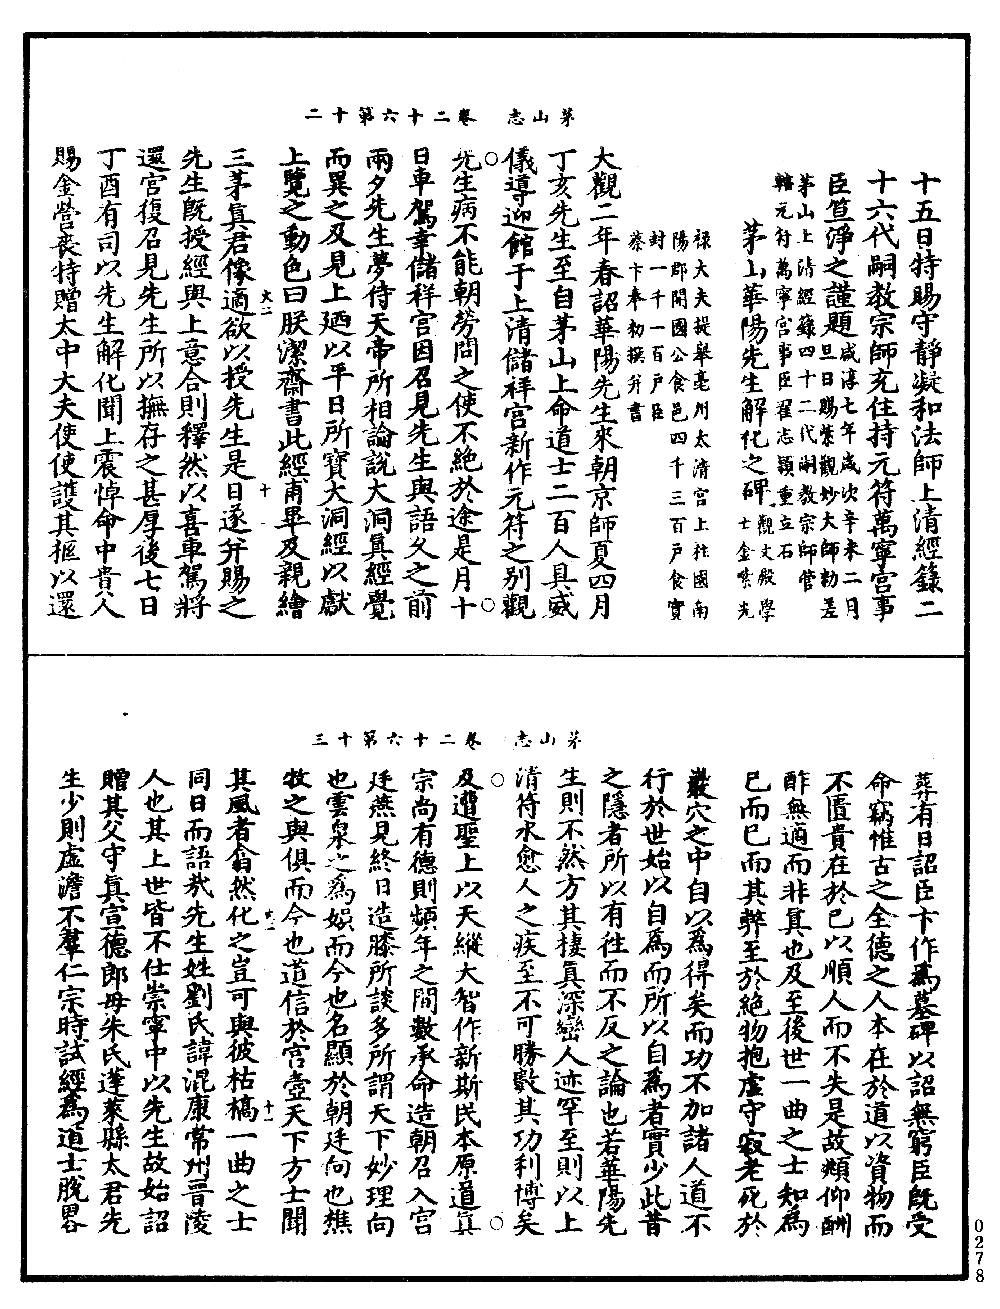 茅山志　卷二十六第十二
十五日特賜守靜凝和法師上清經籙二
十六代嗣教宗師充住持元符萬寧宮事
臣笪淨之謹題咸淳七年歲次辛未二月
旦日賜紫觀妙大師勑差
茅山上清經籙四十二代嗣教宗師管
轄元符萬寧宮事臣翟志穎重立石
茅山華陽先生解化之碑觀文殿學
士金紫光
祿大夫提舉亳州太清宮上柱國南
陽郡開國公食邑四千三百戶食實
封一千一百戶臣
蔡卞奉勑撰并書
大觀二年春詔華陽先生來朝京師夏四月
丁亥先生至自茅山上命道士二百人具威
儀導迎館于上清儲祥宮新作元符之別觀
先生病不能朝勞問之使不絕於途是月十
日車駕幸儲祥宮因召見先生與語久之前
兩夕先生夢侍天帝所相論說大洞真經覺
而異之及見上廼以平日所寶大洞經以獻
上覽之動色曰朕潔齋書此經甫畢及親繪
三茅真君像適欲以授先生是日遂并賜之
先生旣授經與上意合則釋然以喜車駕將
還宮復召見先生所以撫存之甚厚後七日
丁酉有司以先生解化聞上震悼命中貴人
賜金營喪特贈太中大夫使使護其柩以還
茅山志　卷二十六第十三
葬有日詔臣卞作爲墓碑以詔無窮臣旣受
命竊惟古之全德之人本在於道以資物而
不匱貴在於已以順人而不失是故頫仰酬
酢無適而非其也及至後世一曲之士知爲
已而已而其弊至於絕物抱虛守寂老死於
巖穴之中自以爲得矣而功不加諸人道不
行於世始以自爲而所以自爲者實少此昔
之隱者所以有往而不反之論也若華陽先
生則不然方其棲真深巒人迹罕至則以上
清符水愈人之疾至不可勝數其功利博矣
及遭聖上以天縱大智作新斯民本原道真
宗尚有德則頻年之間數承命造朝召入宮
廷燕見終日造膝所談多所謂天下妙理向
也雲泉之爲娛而今也名顯於朝廷向也樵
牧之與俱而今也道信於宮壼天下方士聞
其風者翕然化之豈可與彼枯槁一曲之士
同日而語哉先生姓劉氏諱混康常州晉陵
人也其上世皆不仕崇寧中以先生故始詔
贈其父守真宣德郎母朱氏蓬萊縣太君先
生少則虛澹不羣仁宗時試經爲道士脫畧
0278